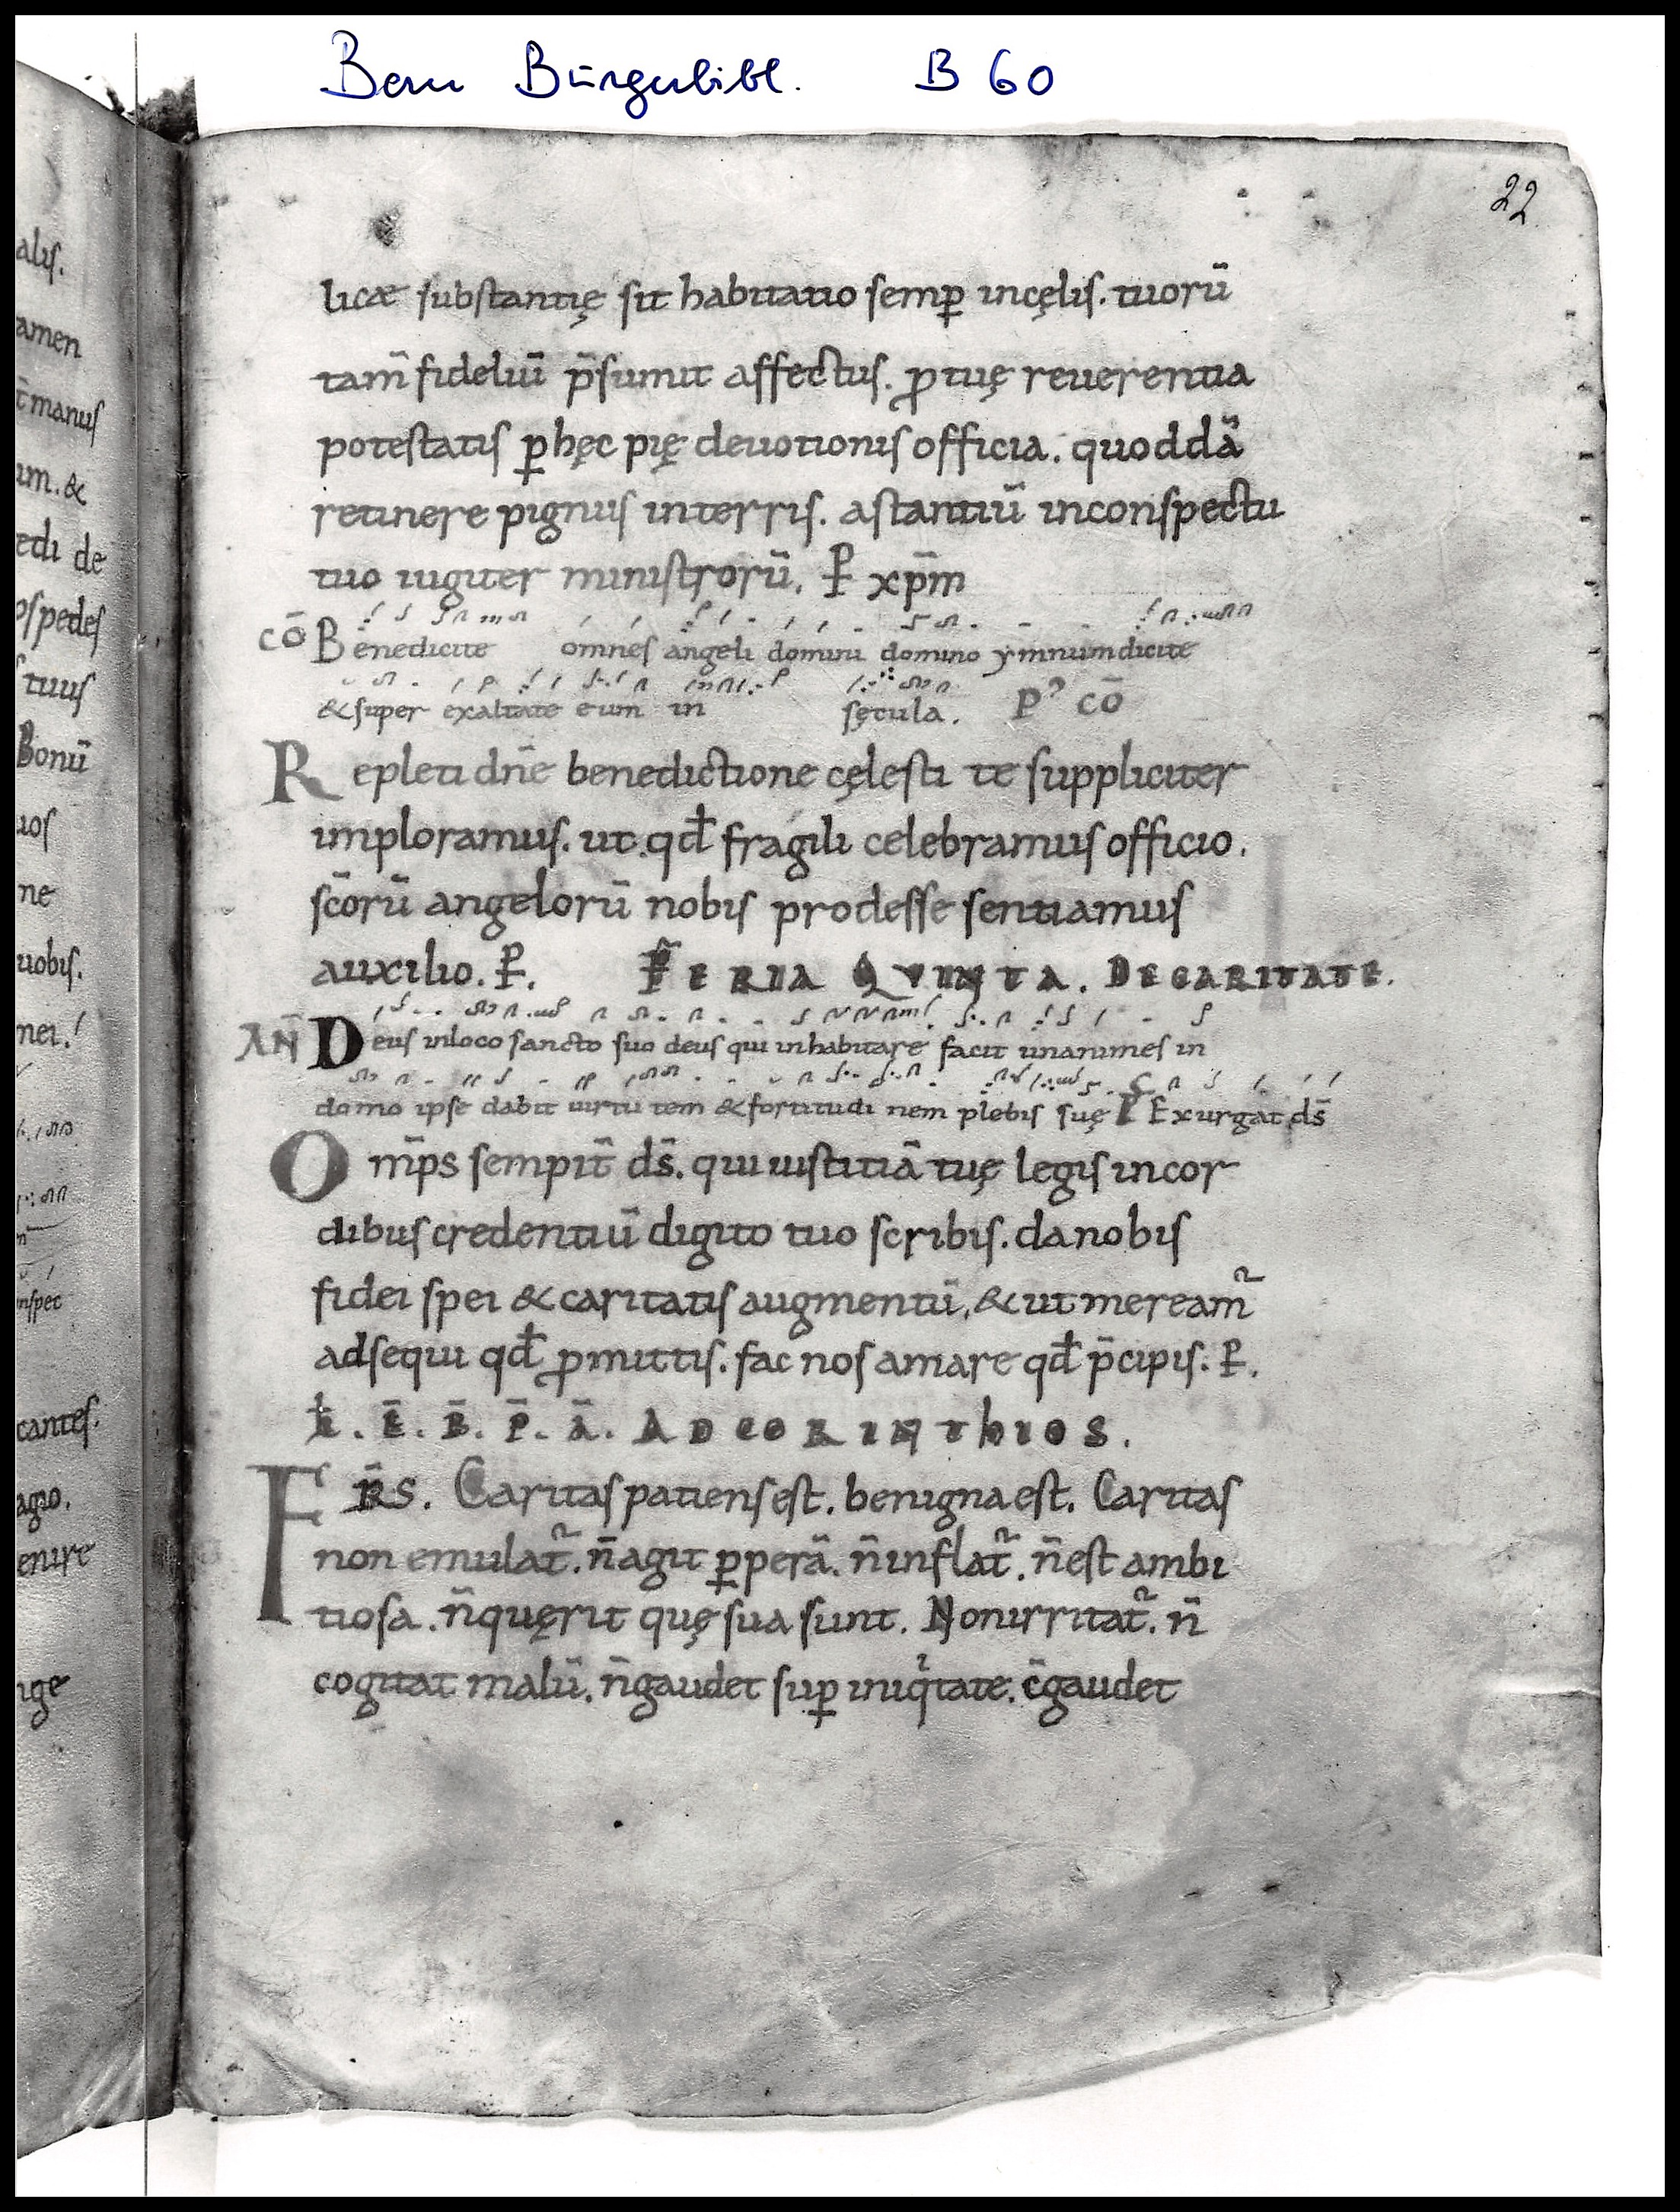 Bern Bürgerbibl. B 60
22
licæ substantię sit habitatio semꝑ incęlis. tuorū
tam̄ fideliū p̄sumit affectus. ꝓ tuę reuerentia
potestatis ꝑ hęc pię deuotionis officia. quoddā
retinere pignus interris. astantiū inconspectu
tuo iugiter ministrorū. P xp̄m
cō Benedicite omnes angeli domini domino ymnum dicite
& super exaltate eum in sęcula. Pꝰ cō
Repleti dn̄e benedictione cęlesti te suppliciter
imploramus. ut. qđ fragili celebramus officio.
sc̄orū angelorū nobis prodesse sentiamus
auxilio. P. FERIA QVINTA. DECARITATE.
AN̄ Deus inloco sancto suo deus qui inhabitare facit unanimes in
domo ipse dabit uirtu tem & fortitudi nem plebis suę P Exurgat ds̄
Om̄ps sempit̄ ds̄. qui iustitiā tuę legis incor
dibus credentiū digito tuo scribis. da nobis
fidei spei & caritatis augmentū, & ut meream᷑
adsequi qđ ꝓmittis. fac nos amare qđ p̄cipis. P.
Ł. Ē. B̄. P̄. Ā. ADCORINThIOS.
FR̄S. Caritas patiens est. benigna est. Caritas
non emulat᷑. n̄ agit ꝑperā. n̄ inflat᷑. n̄ est ambi
tiosa. n̄ quęrit quę sua sunt. Non irritat᷑. n̄
cogitat malū. n̄ gaudet suꝑ iniqͥtate. c̄gaudet
alis.
amen
t̄ manus
um. &
edi de
ospedes
tuus
Bonū
uos
ne
uobis.
nei.
inspec
cantes.
agio.
enire
ige